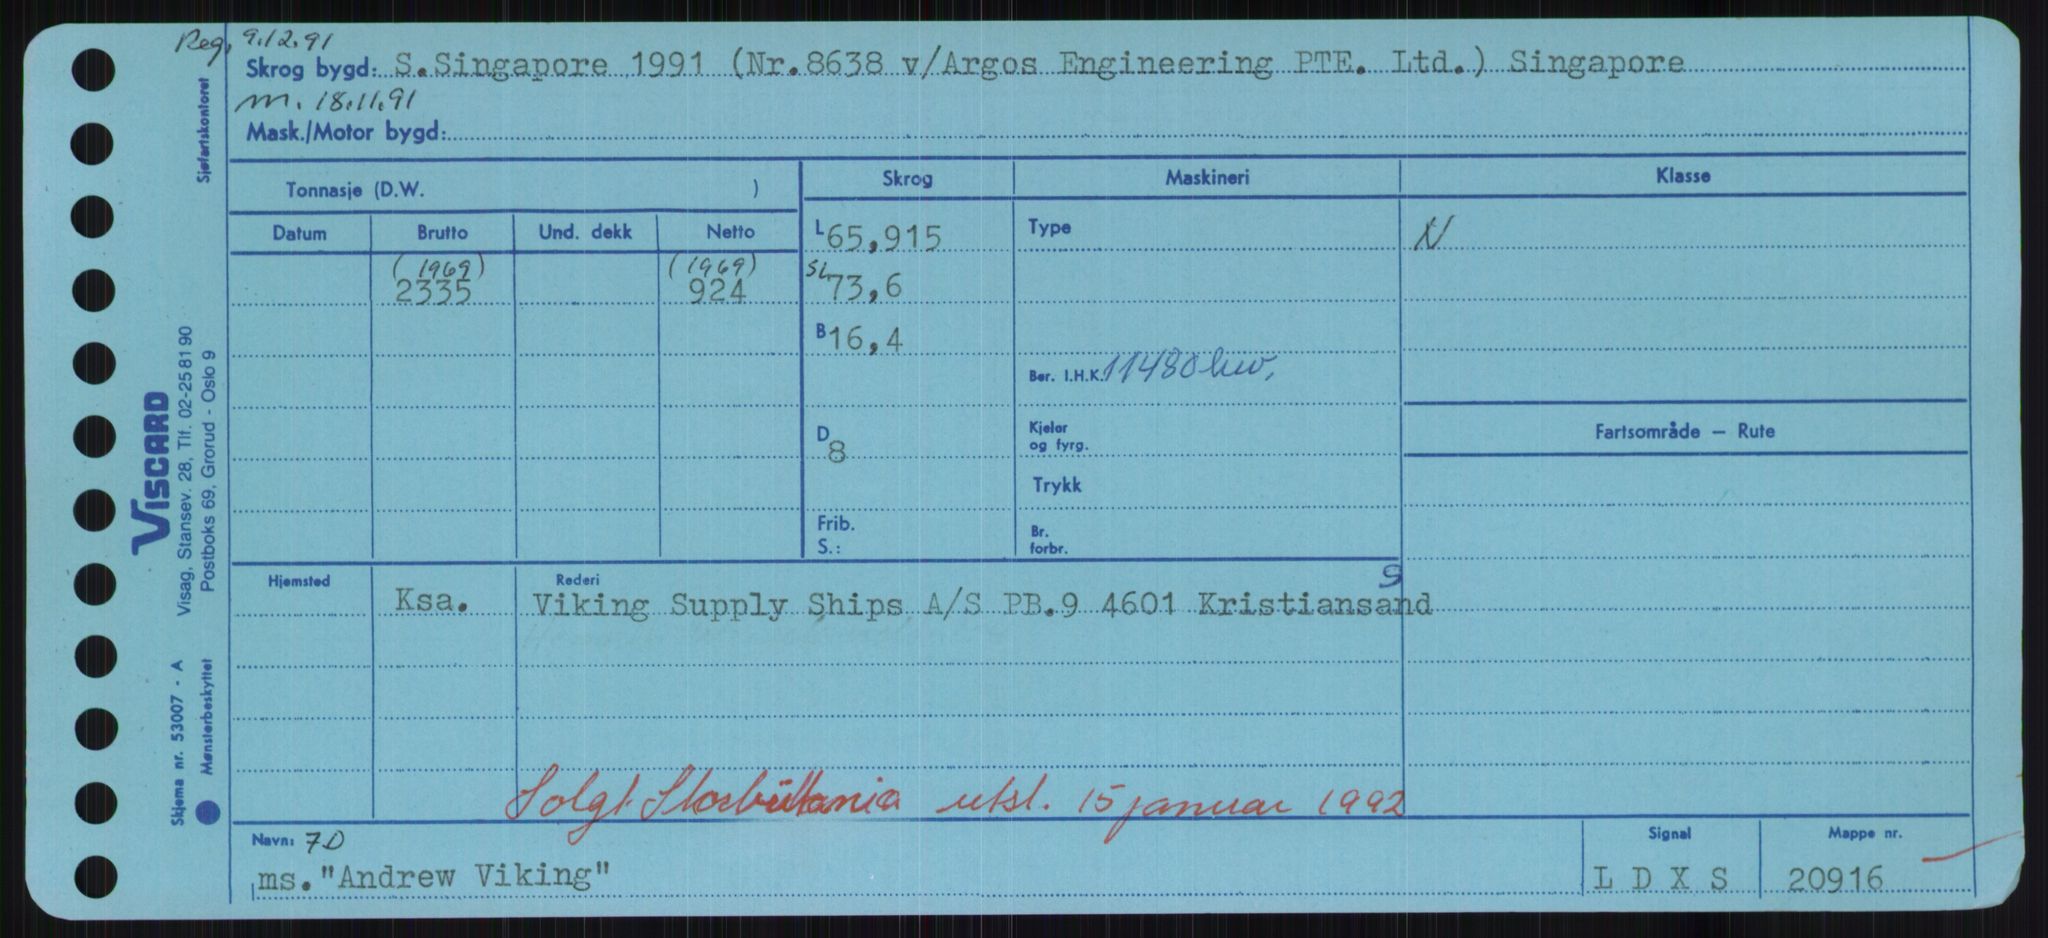 Reg. 9.12.91
Skrog bygd: S.Singapore 1991 (Nr.8638 v/Argos Engineering PTE. Ltd.) Singapore
m. 18.11.91
Mask./Motor bygd:
Sjøfartskontoret
Tonnasje (D.W. )
Skrog Maskineri Klasse
Datum Brutto Und. dekk Netto
L 65,915 Type N
(1969) (1969)
2335 924
SL 73,6
B 16,4
Ber. I.H.K. 11480
Fartsområde — Rute
D 8
Kjeler
og fyrg.
Trykk
Frib.
S.:
Br.
forbr.
VISCARD
Visag, Stansev. 28, Tlf. 02-258190
Postboks 69, Grorud - Oslo 9
Skjema nr. 53007 - A
Mønsterbeskyttet
Hjemsted Rederi
Ksa. Viking Supply Ships A/S PB.9 4601 Kristiansand S
Solgt Storbritannia utsl. 15 januar 1992
Navn: 7D Signal Mappe nr.
ms."Andrew Viking" L D X S 20916